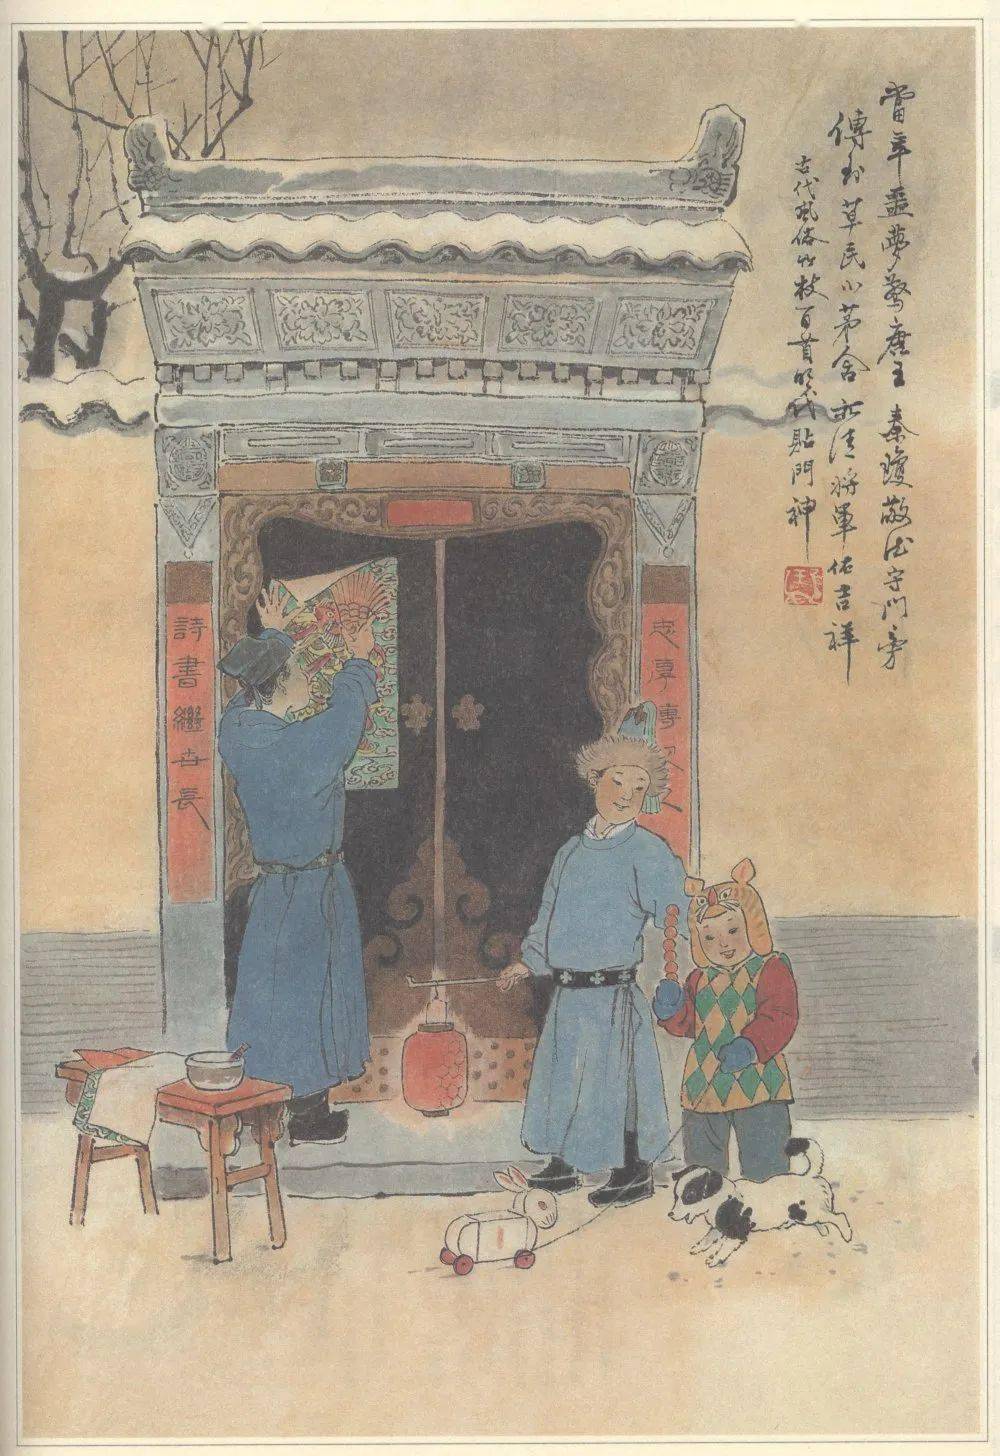 當年噩夢驚唐王 秦瓊敬德守門旁
傳到草民小茅舍 亦請將軍佑吉祥
古代風俗竹枝百首明代貼門神
忠厚傳家久
詩書繼世長